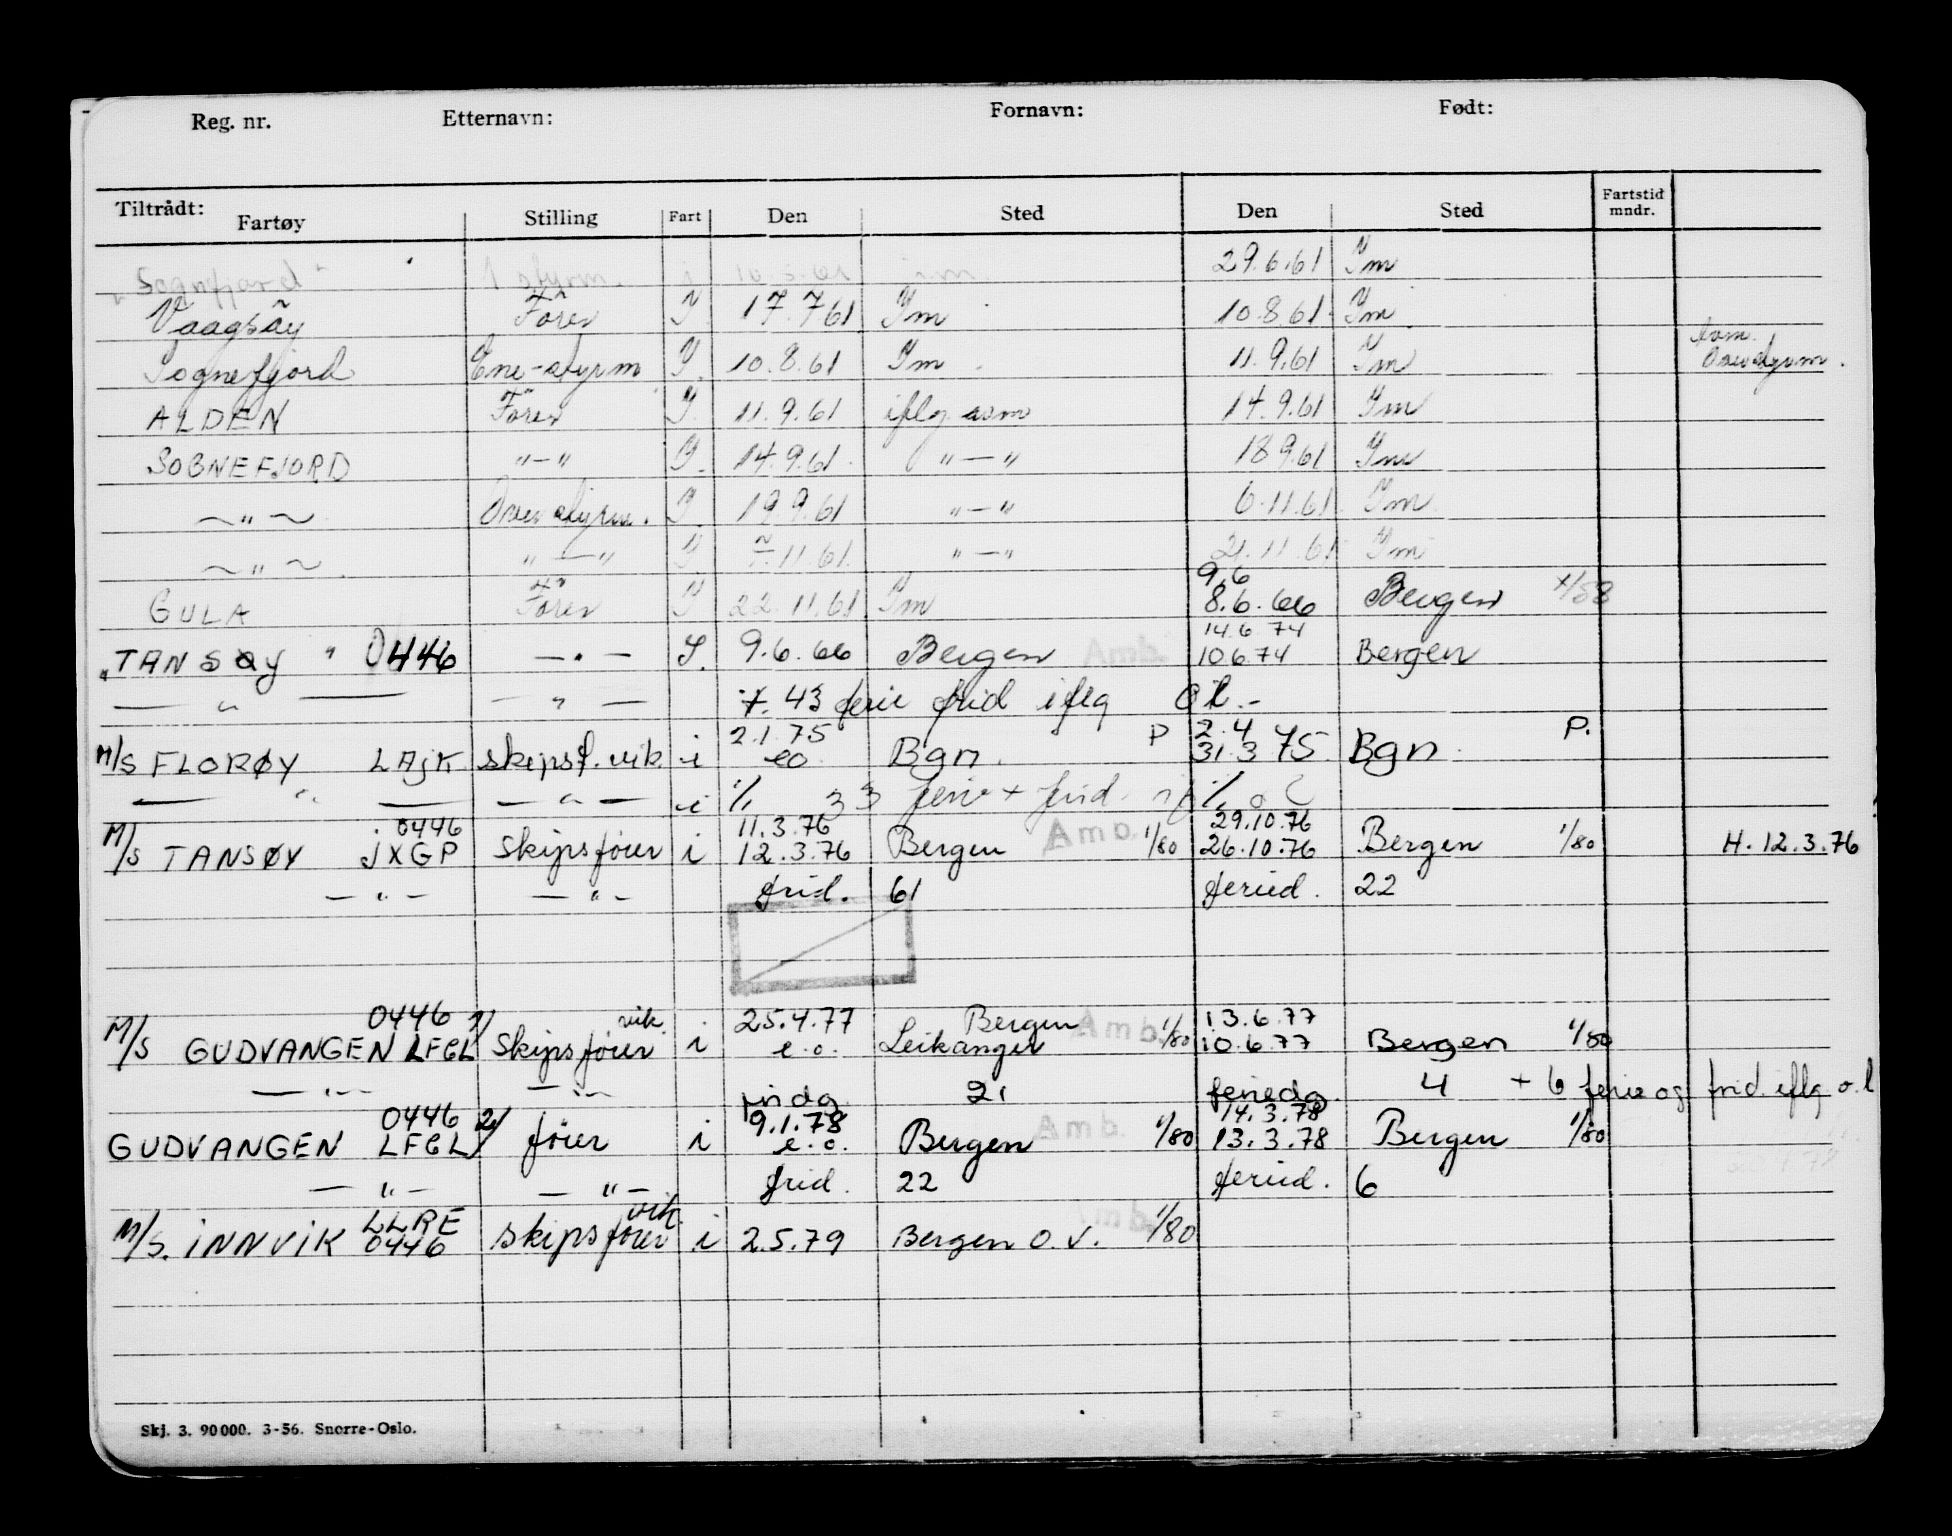 Reg. nr. Etternavn: Fornavn: Født:
Tiltrådt: Fartøy Stilling Fart Den Sted Den Sted Fartstid mndr.
"Sognefjord" 1 styrm. i 10.3.61 im. 29.6.61 Im
Vaagsøy Fører I 17.7.61 Im 10.8.61 Im
Sognefjord Ene-styrm I. 10.8.61 Im 11.9.61 Im som Overstyrm.
ALDEN Fører I. 11.9.61 iflg 14.9.61 Im
SOGNEFJORD "—" I. 14.9.61 "—" 18 9.61 Im
~"~ Overstyrm. I. 19 9.61 "—" 6.11.61 Im
~"~ "—" I 7.11.61. "—" 21.11.61 Im
9.6
GULA Fører I 22.11.61 Im 8.6.66 Bergen 1/58
14.6 74
"TANSØY" 0446 —"— I. 9.6.66 Bergen Amb. 10.6.74 Bergen
—"— —"— 7. 43 ferie frid iflg o l.-
2.1.75 2.4
M/S FLORØY LAJK skipsf. vik. i eo. Bgn. P 31.3.75. Bgn. P.
—"— —"— i 1/1 33 ferie + frid. 1/1
0446 11.3.76 29.10.76
M/S TANSØY JXGP Skipsfører i 12.3.76 Bergen Amb. 1/80 26.10.76 Bergen 1/80 H. 12.3.76
—"— —"— frid. 61 feried. 22
0446 1/ vik. 25.4.77 Bergen 13.6.77
M/S GUDVANGEN LFCL Skipsfører i e.o. Leikanger Amb. 1/80 10.6.77 Bergen 1/80
—"— —"— fridg 21 feriedg. 4 + 6 ferie og frid. iflg o.l
0446 2/ 9.1.78 14.3.78
GUDVANGEN LFCL fører i e.o. Bergen Amb. 1/80 13.3.78 Bergen 1/80
—"— —"— frid. 22 feried. 6
LLRE vik.
M/S. INNVIK 0446 skipsfører i 2.5.79 Bergen o.v. Amb. 1/80
Skj. 3. 90000. 3-56. Snorre-Oslo.